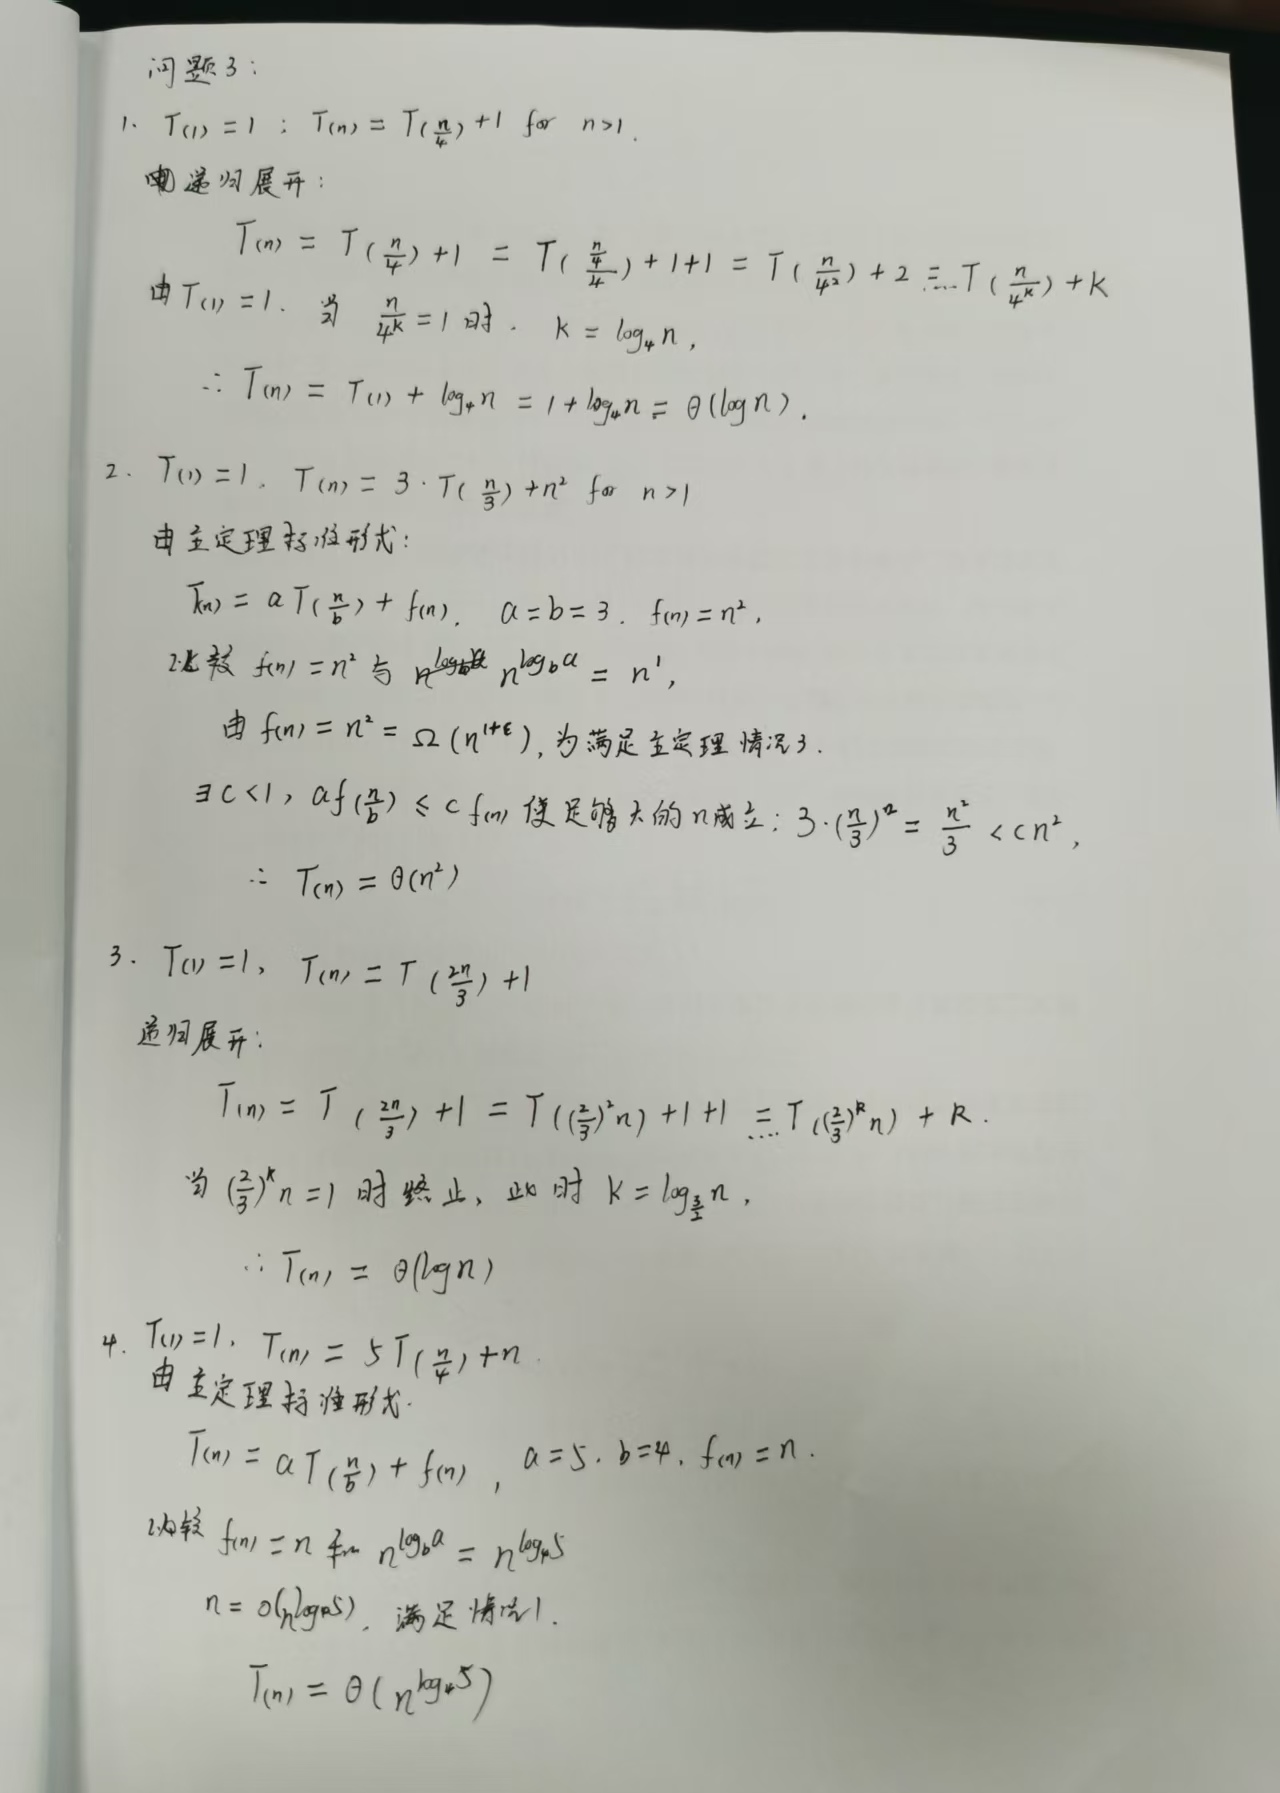 问题3:
1. T(1) = 1 ; T(n) = T(n/4) + 1 for n>1.
递归展开:
T(n) = T(n/4) + 1 = T((n/4)/4) + 1+1 = T(n/4²) + 2 =...T(n/4^k) + k
由T(1) = 1. 当 n/4^k = 1 时. k = log₄n,
∴ T(n) = T(1) + log₄n = 1 + log₄n = θ(log n).
2. T(1) = 1. T(n) = 3·T(n/3) + n² for n>1
由主定理标准形式:
T(n) = aT(n/b) + f(n). a=b=3. f(n) = n²,
比较 f(n) = n² 与 n^(log_b a) = n¹,
由 f(n) = n² = Ω(n^(1+ε)), 为满足主定理情况3.
∃c<1, af(n/b) ≤ cf(n) 使足够大的n成立: 3·(n/3)² = n²/3 < cn²,
∴ T(n) = θ(n²)
3. T(1) = 1, T(n) = T(2n/3) + 1
递归展开:
T(n) = T(2n/3) + 1 = T((2/3)²n) + 1+1 =....T((2/3)^k n) + k.
当 (2/3)^k n = 1 时终止, 此时 k = log_(3/2) n,
∴ T(n) = θ(log n)
4. T(1) = 1. T(n) = 5T(n/4) + n.
由主定理标准形式.
T(n) = aT(n/b) + f(n), a=5. b=4. f(n) = n.
比较 f(n) = n 和 n^(log_b a) = n^(log₄5)
n = O(n^(log₄5)). 满足情况1.
T(n) = θ(n^(log₄5))